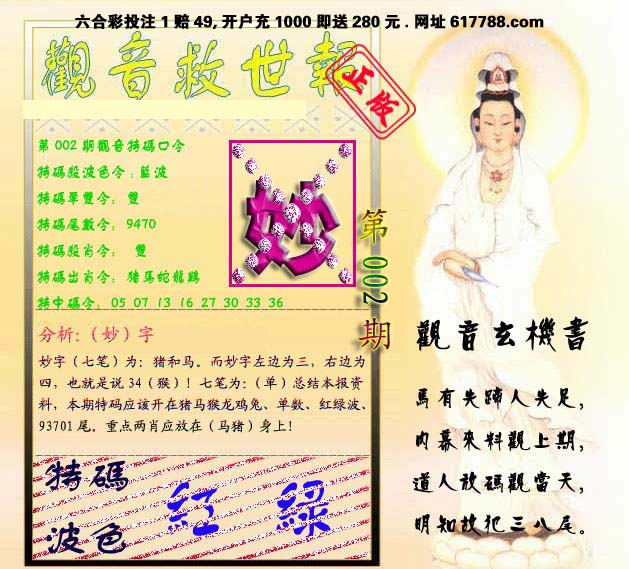 六合彩投注1赔49,开户充1000即送280元.网址617788.com
觀音救世報
正版
第002期觀音特碼口令
特碼殺波色令:藍波
特碼單雙令: 雙
特碼尾數令: 9470
特碼殺肖令: 雙
特碼出肖令: 猪馬蛇龍鷄
特中碼令: 05 07 13 16 27 30 33 36
妙
第002期
分析:（妙）字
妙字（七笔）为：猪和马。而妙字左边为三，右边为
四，也就是说34（猴）！七笔为：(单）总结本报资
料，本期特码应该开在猪马猴龙鸡兔、单数、红绿波、
93701尾。重点两肖应放在（马猪）身上！
特碼
波色
紅 綠
觀音玄機書
馬有失蹄人失足，
内幕來料觀上期，
道人放碼觀當天，
明知故犯三八尾。